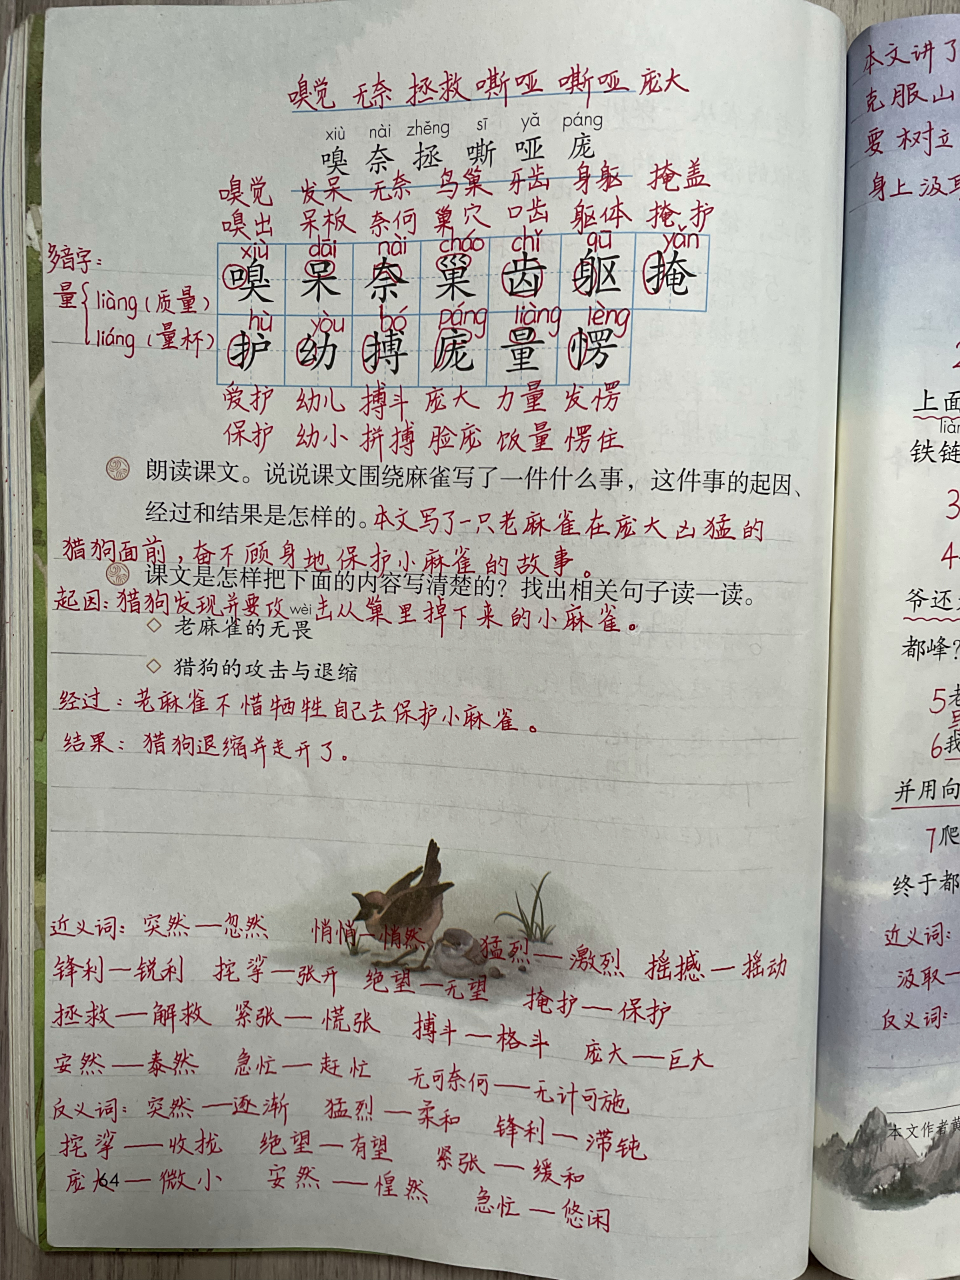 嗅觉 无奈 拯救 嘶哑 嘶哑 庞大
xiù nài zhěng sī yǎ páng
嗅 奈 拯 嘶 哑 庞
嗅觉 发呆 无奈 鸟巢 牙齿 身躯 掩盖
嗅出 呆板 奈何 巢穴 口齿 躯体 掩护
xiù dāi nài cháo chǐ qū yǎn
嗅 呆 奈 巢 齿 躯 掩
多音字:
量 liàng(质量)
liáng(量杯)
hù yòu bó páng liàng lèng
护 幼 搏 庞 量 愣
爱护 幼儿 搏斗 庞大 力量 发愣
保护 幼小 拼搏 脸庞 饭量 愣住
朗读课文。说说课文围绕麻雀写了一件什么事，这件事的起因、
经过和结果是怎样的。本文写了一只老麻雀在庞大凶猛的
猎狗面前,奋不顾身地保护小麻雀的故事。
课文是怎样把下面的内容写清楚的？找出相关句子读一读。
起因:猎狗发现并要攻击从巢里掉下来的小麻雀。
wèi
◇ 老麻雀的无畏
◇ 猎狗的攻击与退缩
经过:老麻雀不惜牺牲自己去保护小麻雀。
结果:猎狗退缩并走开了。
近义词:突然—忽然 悄悄—悄然 猛烈—激烈 摇撼—摇动
锋利—锐利 挓挲—张开 绝望—无望 掩护—保护
拯救—解救 紧张—慌张 搏斗—格斗 庞大—巨大
安然—泰然 急忙—赶忙 无可奈何—无计可施
反义词:突然—逐渐 猛烈—柔和 锋利—滞钝
挓挲—收拢 绝望—有望 紧张—缓和
庞大—微小 安然—惶然 急忙—悠闲
64
本文讲了
克服山
要树立
身上汲取
上面
liàn
铁链
3
4
爷还
都峰?
5老
6我
并用向
7爬
终于都
近义词:
汲取—
反义词:
本文作者黄